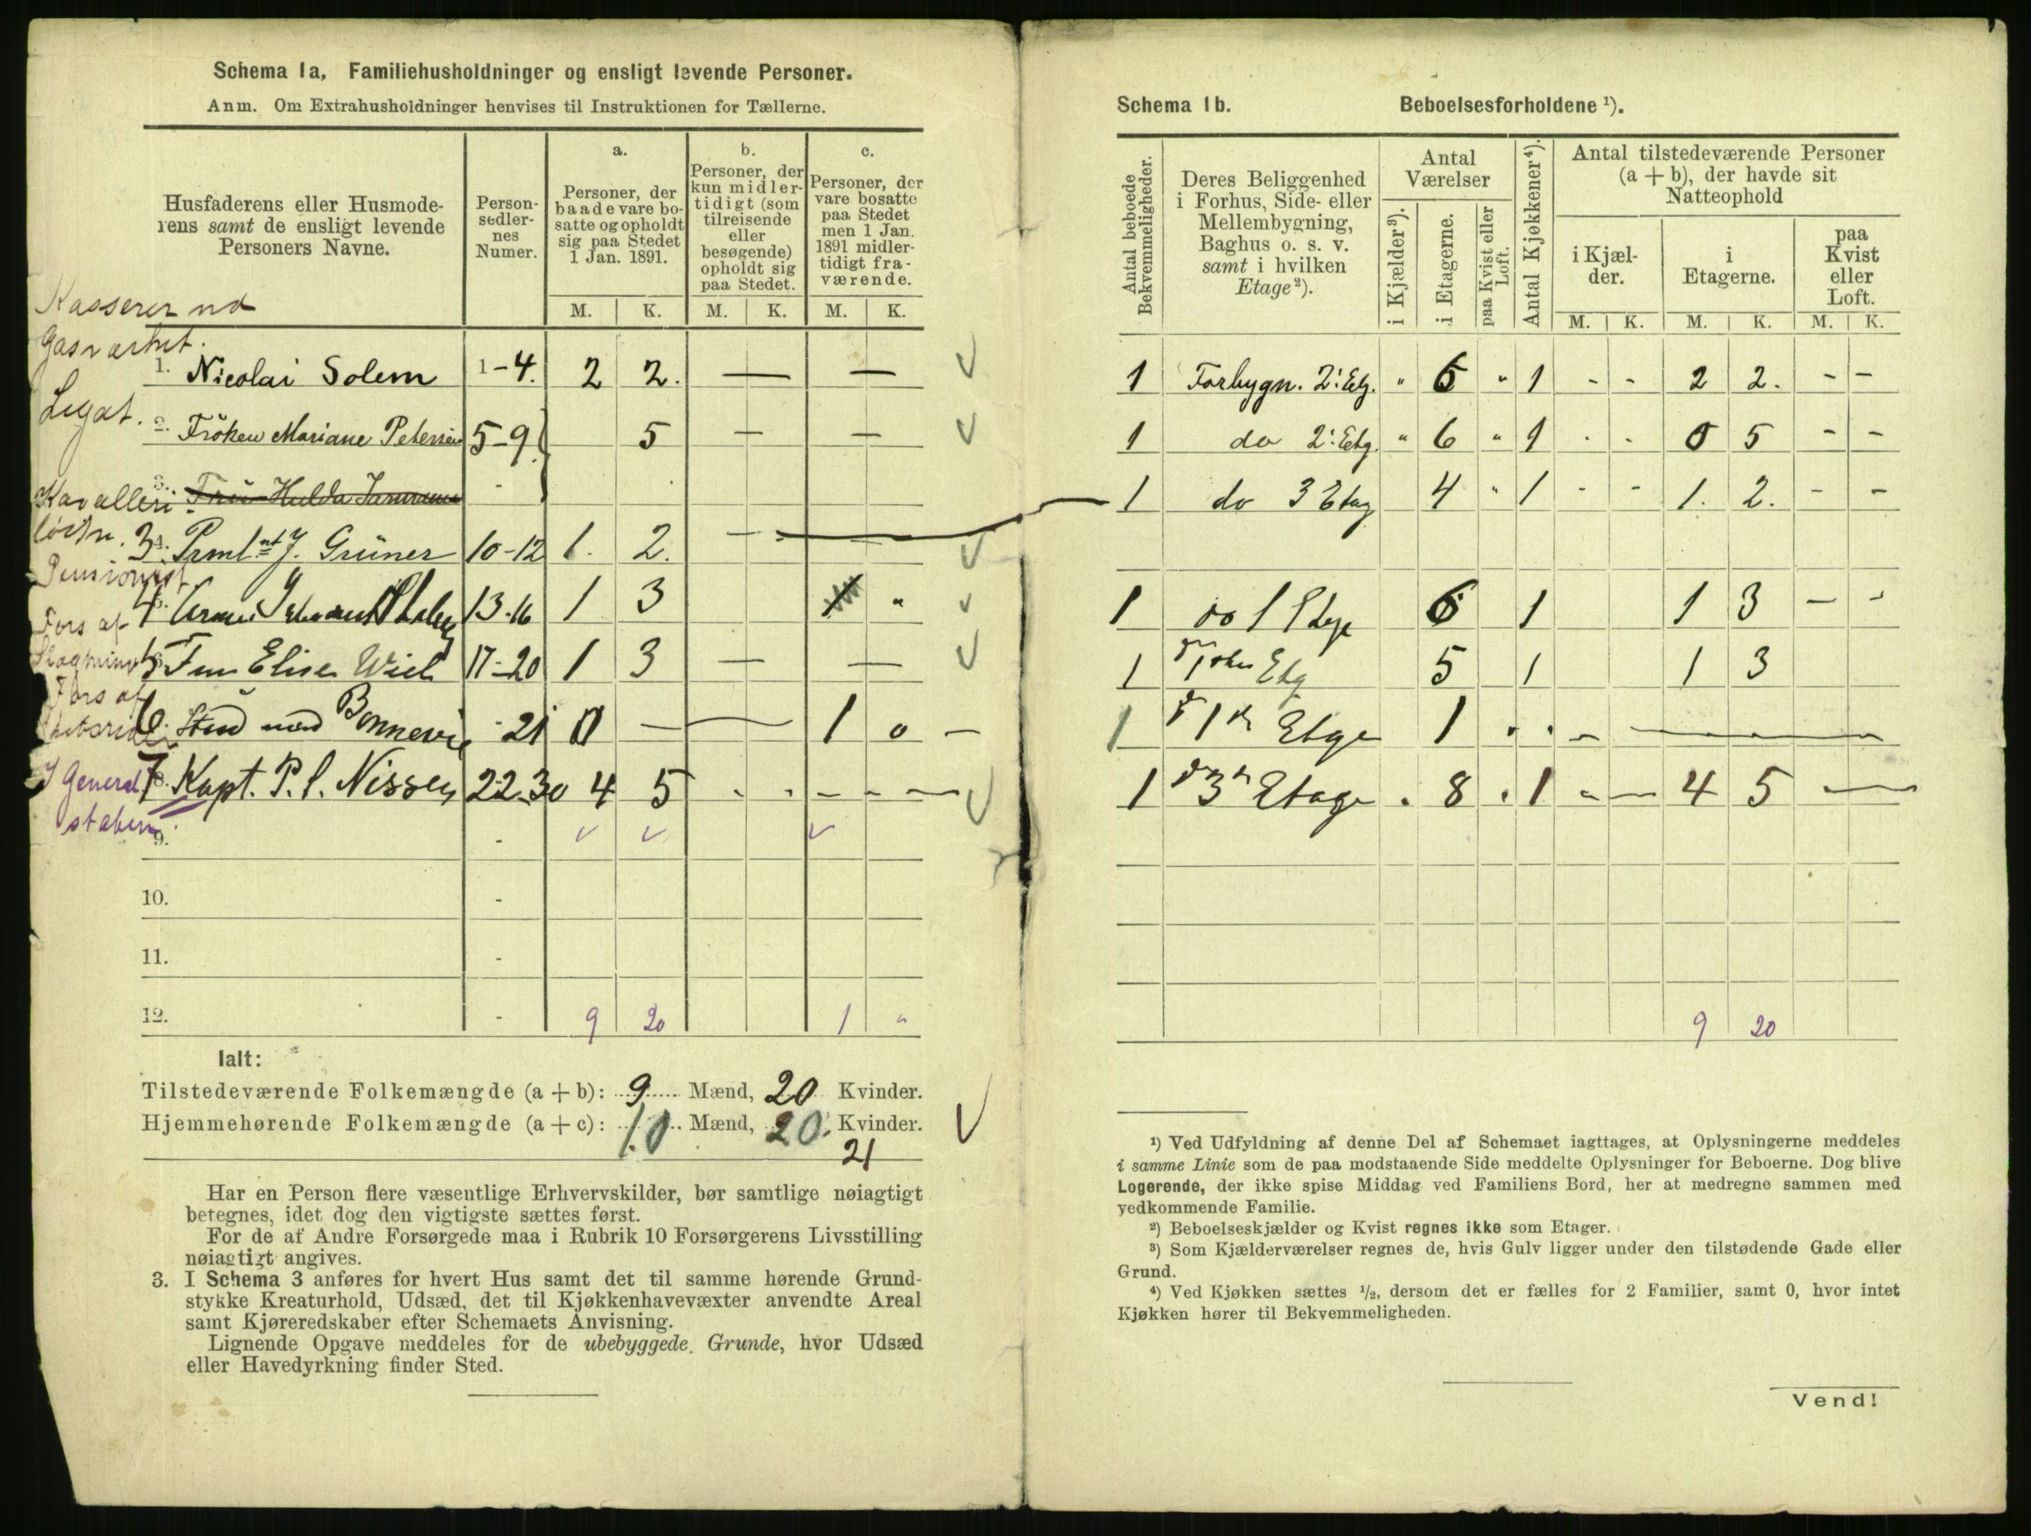 Schema 1a, Familiehusholdninger og ensligt levende Personer.
Anm. Om Extrahusholdninger henvises til Instruktionen for Tællerne.
Husfaderens eller Husmode-
rens samt de ensligt levende
Personers Navne.
Person-
sedler-
nes
Numer.
a.
Personer, der
baade vare bo-
satte og opholdt
sig paa Stedet
1 Jan. 1891.
b.
Personer, der
kun midler-
tidigt (som
tilreisende
eller
besøgende)
opholdt sig
paa Stedet.
c.
Personer, der
vare bosatte
paa Stedet
men 1 Jan.
1891 midler-
tidigt fra-
værende.
M. K. M. K. M. K.
Kasserer vd
Gasværket.
1. Nicolai Solem 1-4. 2 2. — —
Legat.
2. Frøken Mariane Petersen 5-9 5 — —
3. Fru Hulda -
Kavalleri
3 4. Prmlnt J. Grüner 10-12 1. 2. —
Pensionist
4 5. 13-16 1 3 1 "
Fors af
5 6. Fru Elise Wiel 17-20 1 3 — —
Fors af
6 7. Stud med Bonnevie -21 0 — — 1 0 —
I General
staben.
7 8. Kapt. P. S. Nissen 22-30 4 5 - - - - —
9. -
10. -
11. -
12. - 9 20 1 "
Ialt:
Tilstedeværende Folkemængde (a + b): 9 Mænd, 20 Kvinder.
Hjemmehørende Folkemængde (a + c): 10 Mænd, 20. Kvinder.
21
Har en Person flere væsentlige Erhvervskilder, bør samtlige nøiagtigt
betegnes, idet dog den vigtigste sættes først.
For de af Andre Forsørgede maa i Rubrik 10 Forsørgerens Livsstilling
nøiagtigt angives.
3. I Schema 3 anføres for hvert Hus samt det til samme hørende Grund-
stykke Kreaturhold, Udsæd, det til Kjøkkenhavevæxter anvendte Areal
samt Kjøreredskaber efter Schemaets Anvisning.
Lignende Opgave meddeles for de ubebyggede Grunde, hvor Udsæd
eller Havedyrkning finder Sted.
Schema 1b. Beboelsesforholdene ¹).
Antal beboede
Bekvemmeligheder.
Deres Beliggenhed
i Forhus, Side- eller
Mellembygning,
Baghus o. s. v.
samt i hvilken
Etage²).
Antal
Værelser
i Kjælder³).
i Etagerne.
paa Kvist eller
Loft.
Antal Kjøkkener⁴).
Antal tilstedeværende Personer
(a + b), der havde sit
Natteophold
i Kjæl-
der.
i
Etagerne.
paa
Kvist
eller
Loft.
M. K. M. K. M. K.
1 Forbygn. 2. Etg. " 6 " 1 - - 2 2. - -
1 do 2. Etg. " 6 " 1 - - 0 5 - -
1 do 3 Etag 4 " 1 - - 1. 2. - -
1 do 1 Etge 6 1 1 3 - -
1 Etg 5 1 1 3
1 Etge 1 - - - —
1 Etage . 8 . 1 - - 4 5 —
9 20
¹) Ved Udfyldning af denne Del af Schemaet iagttages, at Oplysningerne meddeles
i samme Linie som de paa modstaaende Side meddelte Oplysninger for Beboerne. Dog blive
Logerende, der ikke spise Middag ved Familiens Bord, her at medregne sammen med
vedkommende Familie.
²) Beboelseskjælder og Kvist regnes ikke som Etager.
³) Som Kjælderværelser regnes de, hvis Gulv ligger under den tilstødende Gade eller
Grund.
⁴) Ved Kjøkken sættes ½, dersom det er fælles for 2 Familier, samt 0, hvor intet
Kjøkken hører til Bekvemmeligheden.
Vend!